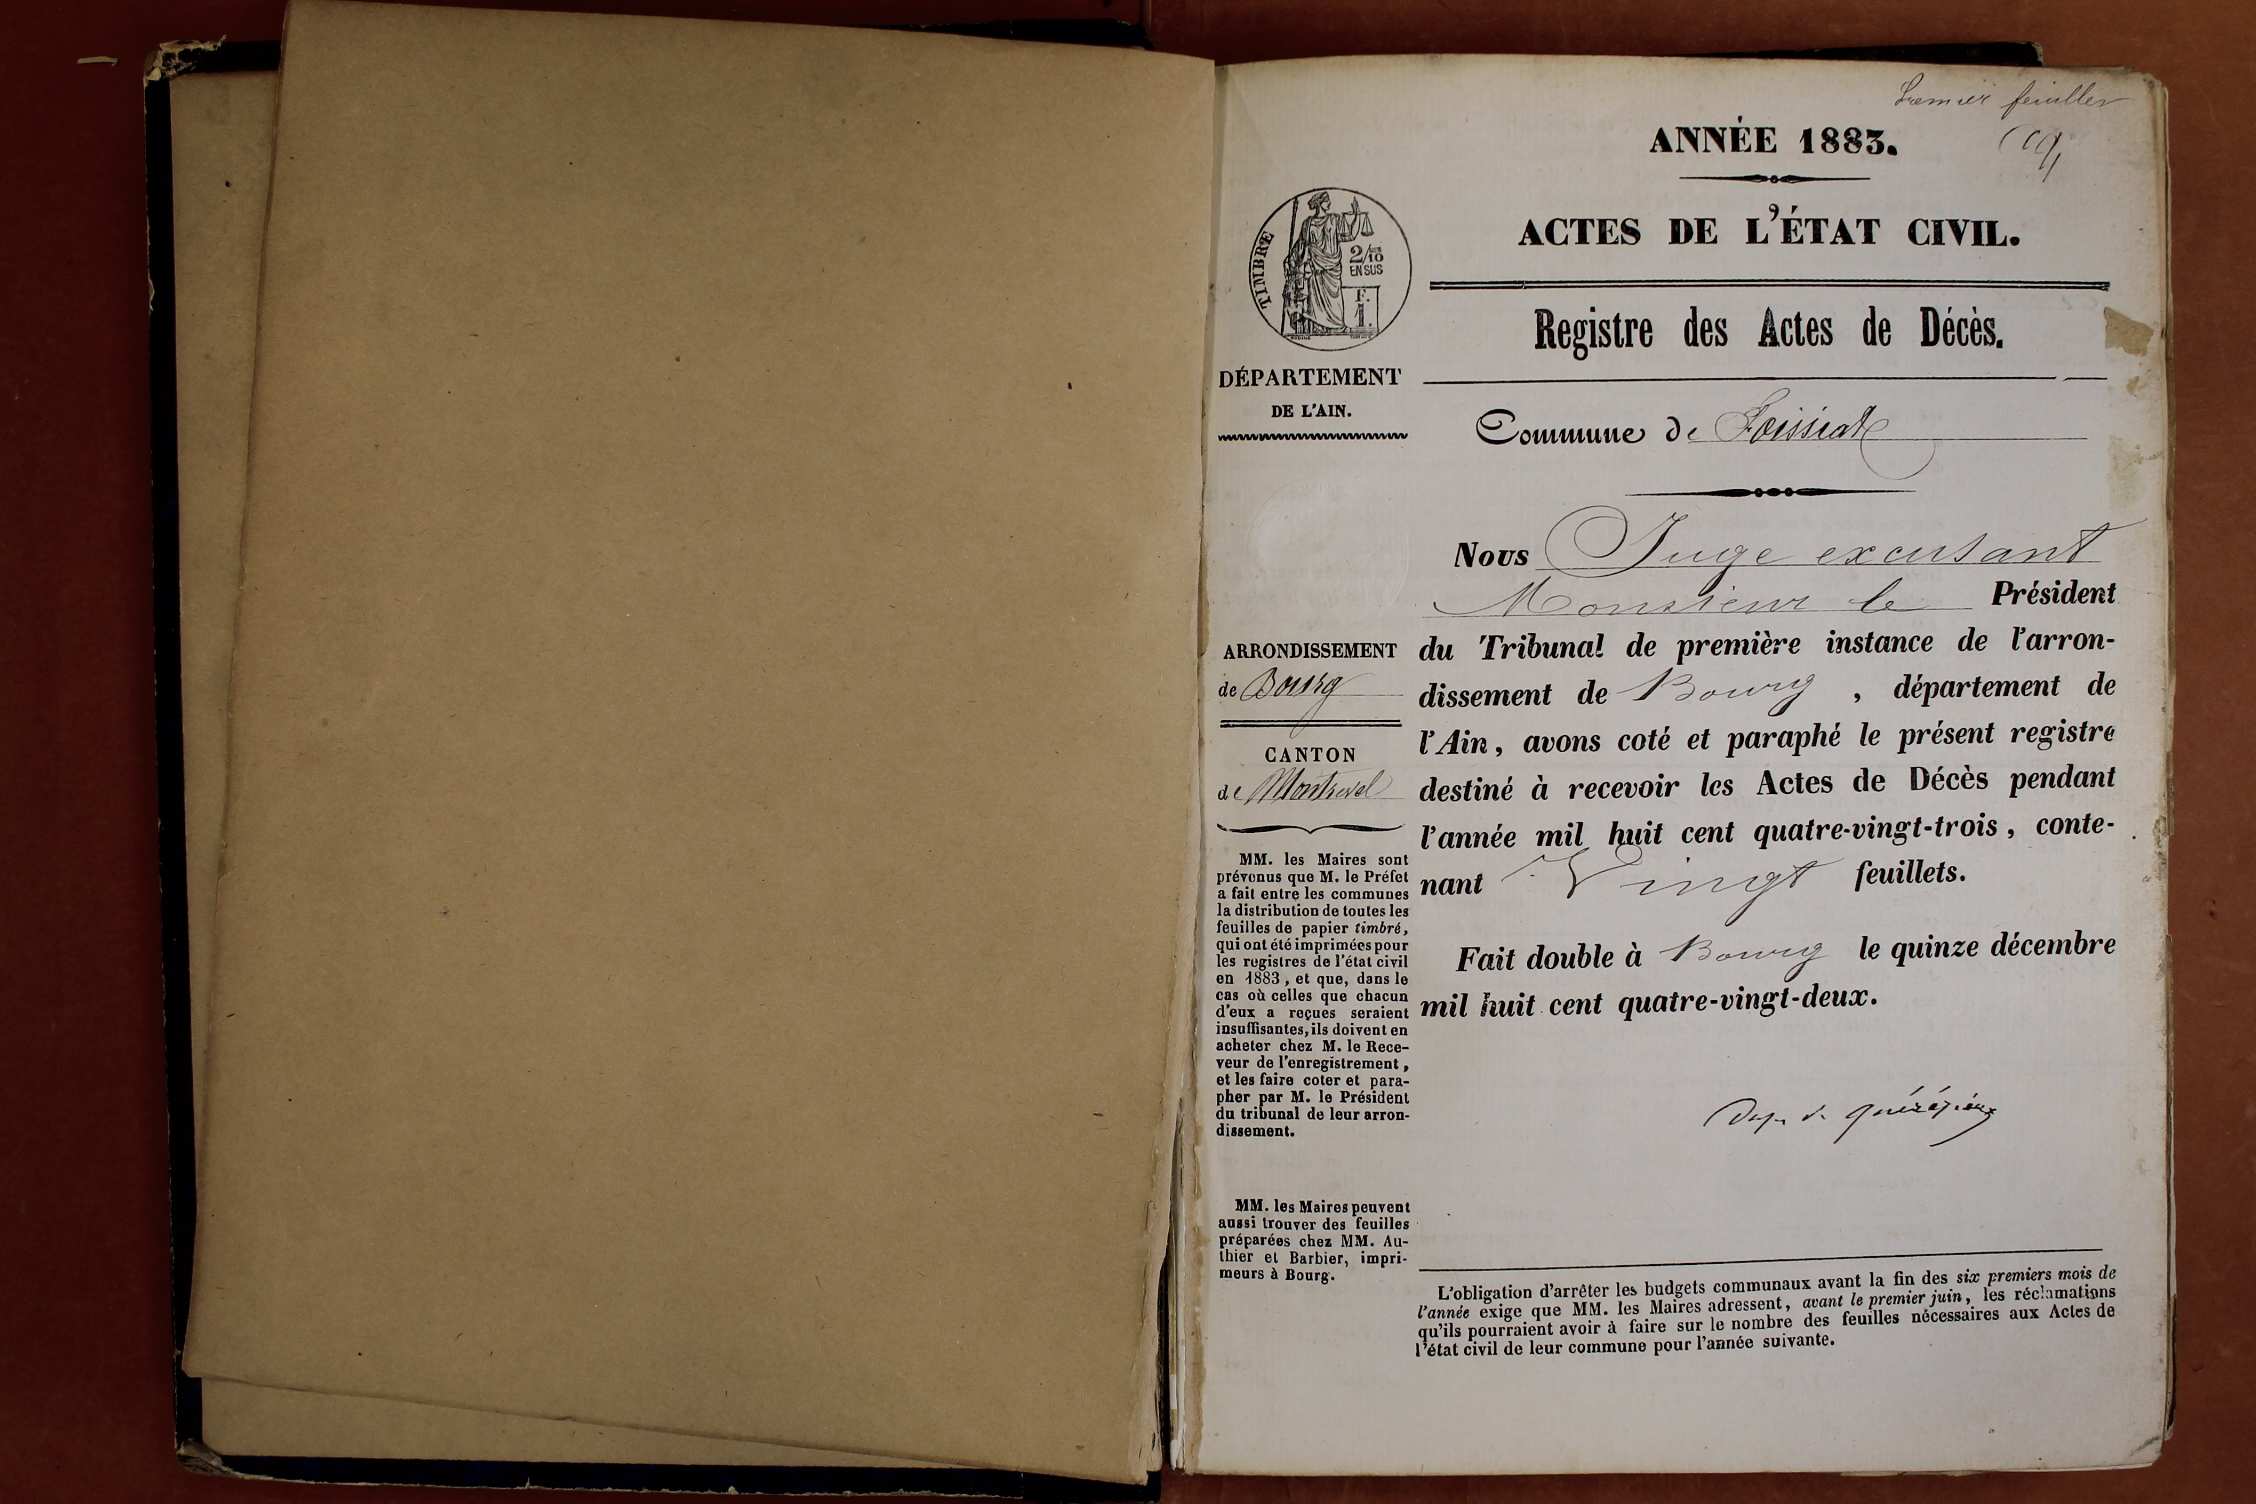 Premier feuillet
ANNÉE 1883.
ACTES DE L'ÉTAT CIVIL.
TIMBRE
2/10
EN SUS
F.
1.
Registre des Actes de Décès.
DÉPARTEMENT
DE L'AIN.
Commune de Foissiat
Nous Juge excusant
Monsieur le Président
du Tribunal de première instance de l'arron-
dissement de Bourg, département de
l'Ain, avons coté et paraphé le présent registre
destiné à recevoir les Actes de Décès pendant
l'année mil huit cent quatre-vingt-trois, conte-
nant Vingt feuillets.
Fait double à Bourg le quinze décembre
mil huit cent quatre-vingt-deux.
ARRONDISSEMENT
de Bourg
CANTON
de Montrevel
MM. les Maires sont
prévenus que M. le Préfet
a fait entre les communes
la distribution de toutes les
feuilles de papier timbré,
qui ont été imprimées pour
les registres de l'état civil
en 1883, et que, dans le
cas où celles que chacun
d'eux a reçues seraient
insuffisantes, ils doivent en
acheter chez M. le Rece-
veur de l'enregistrement,
et les faire coter et para-
pher par M. le Président
du tribunal de leur arron-
dissement.
MM. les Maires peuvent
aussi trouver des feuilles
préparées chez MM. Au-
thier et Barbier, impri-
meurs à Bourg.
L'obligation d'arrêter les budgets communaux avant la fin des six premiers mois de
l'année exige que MM. les Maires adressent, avant le premier juin, les réclamations
qu'ils pourraient avoir à faire sur le nombre des feuilles nécessaires aux Actes de
l'état civil de leur commune pour l'année suivante.